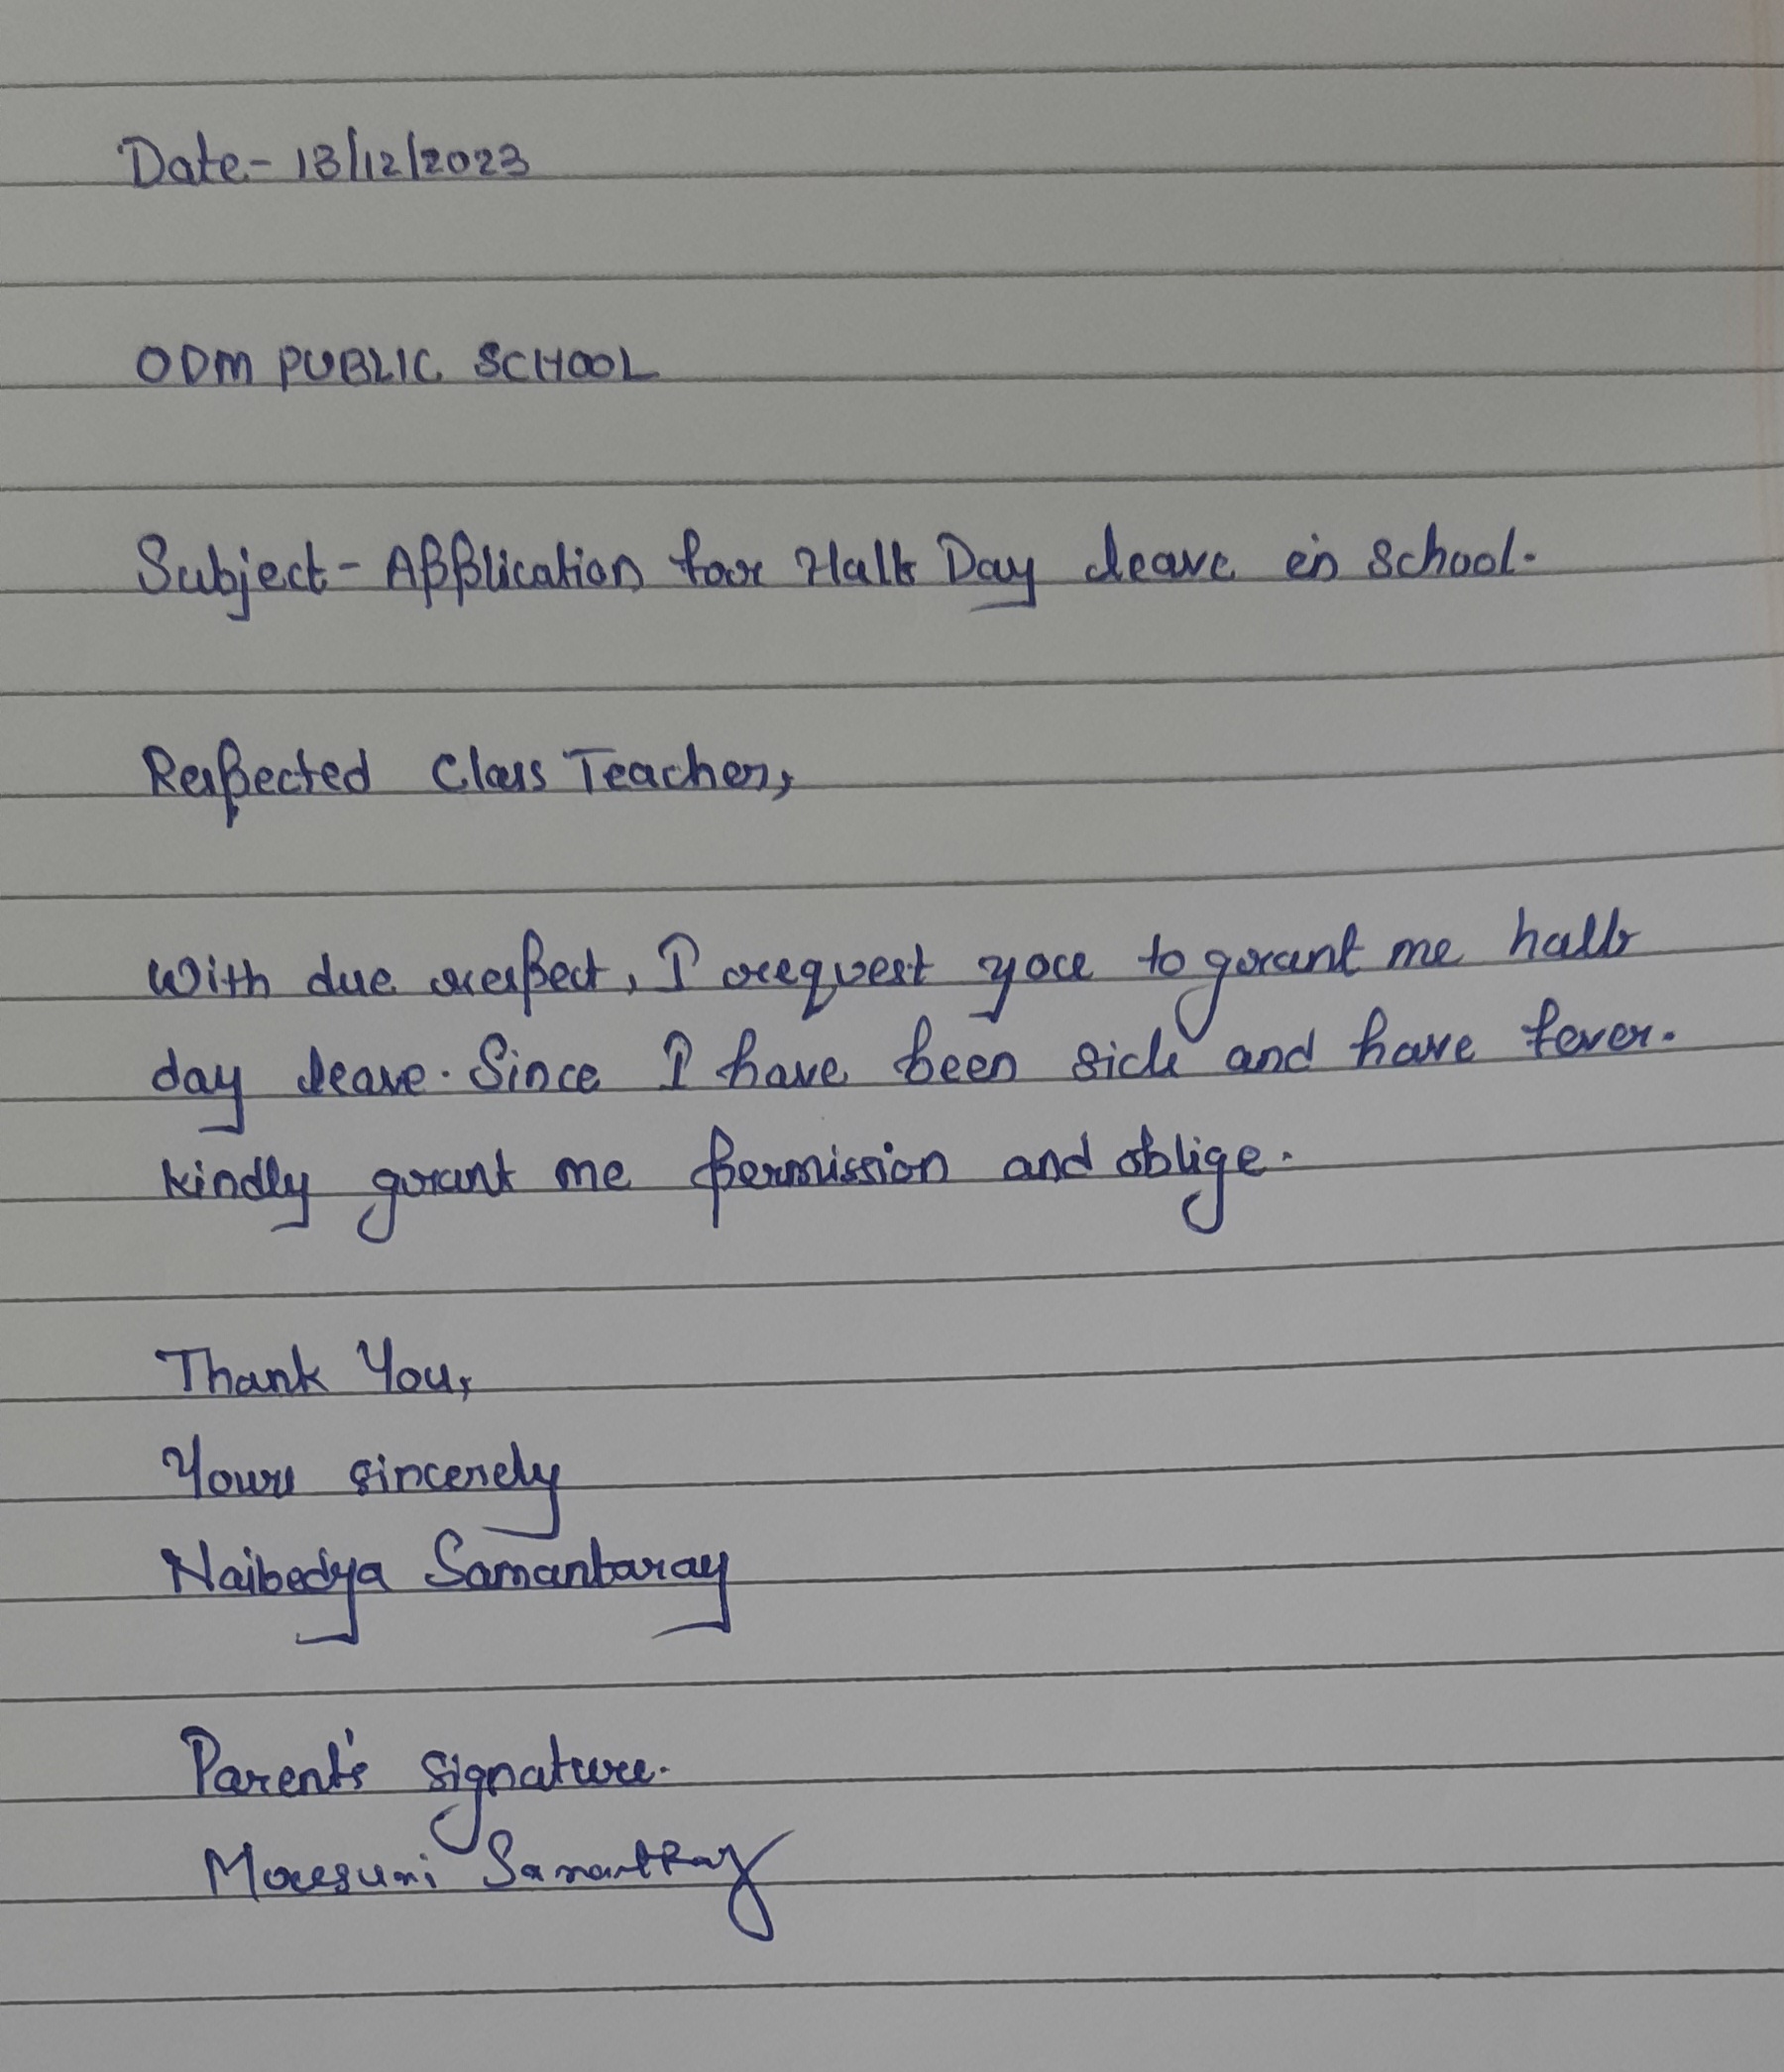 Date- 13/12/2023
ODM PUBLIC SCHOOL
Subject- Application for Half Day leave in school.
Respected Class Teacher,
With due respect, I request you to grant me half
day leave. Since I have been sick and have fever.
kindly grant me permission and oblige.
Thank You,
Yours sincerely
Naibedya Samantaray
Parent's signature.
Samantray